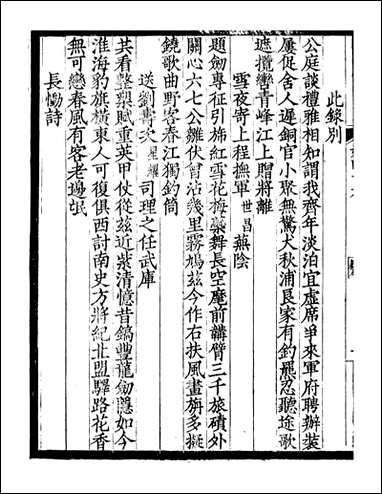 此錄別
公庭談禮雅相知謂我齊年淡泊宜虛席爭來軍府聘辦裝
屢促舍人遲銅官小聚無驚犬秋浦良家有釣羆忍聽途歌
遮攬轡青峰江上贈將離
雪夜寄上程撫軍世昌蕪陰
題劒專征引旆旌雪花梅蘂舞長空麾前韝臂三千旅磧外
關心六七公雛伏曾沾幾里霧鳩茲今作右扶風畫旃多擬
鐃歌曲野客春江獨釣筒
送劉壽次星耀司理之任武庫
共看整槊賦重英甲仗從茲近紫清憶昔鎬豐龍劒隱如今
淮海豹旗橫東人可復俱西討南史方將紀北盟驛路花香
無可戀春風有客老邊氓
長慟詩